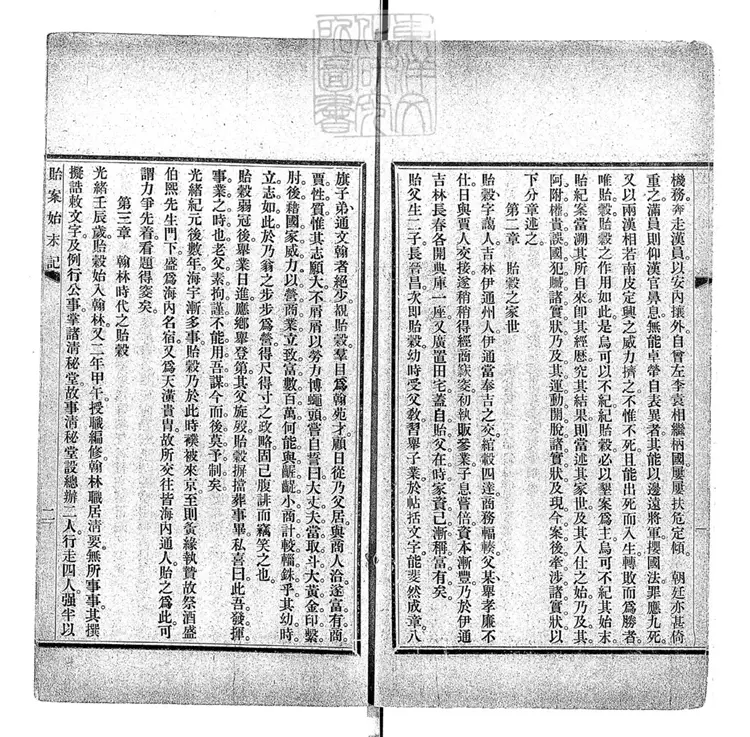 機務奔走漢員以安內攘外自曾左李袁相繼柄國屢屢扶危定傾。 朝廷亦甚倚
重之滿員則仰漢官鼻息無能卓犖自表異者其能以邊遠將軍攖國法罪應九死。
又以兩漢相若南皮定興之威力擠之不惟不死且能出死而入生轉敗而爲勝者。
唯貽穀貽穀之作用如此是烏可以不紀紀貽穀必以墾案爲主烏可不紀其始末。
貽紀案當溯其所自來即其經歷究其結果則當述其家世及其入仕之始乃及其
阿附權貴誤國犯贓諸實狀乃及其運動開脫諸實狀及現今案後牽涉諸實狀以
下分章述之
第二章 貽穀之家世
貽穀字藹人吉林伊通州人伊通當奉吉之交綰轂四達商務輻輳父某舉孝廉不
仕日與賈人交接遂稍稍得經商窽妄初執販參業子息嘗倍資本漸豐乃於伊通
吉林長春各開典庫一座又廣置田宅蓋自貽父在時家資已漸稱富有矣。
貽父生二子長晉昌次即貽穀幼時受父教習舉子業於帖括文字能斐然成章八
旗子弟通文翰者絕少覩貽穀羣目爲翰苑才顧日從乃父居與商人沿遂富有商
賈性質惟其志願大不屑屑以勞力博蠅頭嘗自誓曰大丈夫當取斗大黃金印繫
肘後藉國家威力以營商業立致富數百萬何能與齷齪小商計較輜銖乎其幼時
立志如此於乃翁之步步爲營得尺得寸之政略固已腹誹而竊笑之也。
貽穀弱冠後舉業日進應鄉舉登第其父旋歿貽穀摒擋葬事畢私喜曰此吾發揮
事業之時也老父素拘謹不能用吾謀今而後莫予制矣。
光緒紀元後數年海宇漸多事貽穀乃於此時襆被來京至則夤緣執贄故祭酒盛
伯熙先生門下盛爲海內名宿又爲天潢貴胄故所交往皆海內通人貽之爲此可
謂力爭先着看題得竅矣。
第三章 翰林時代之貽穀
光緒壬辰歲貽穀始入翰林又二年甲午授職編修翰林職居清要無所事事其撰
擬誥敕文字及例行公事掌諸清秘堂故事清秘堂設總辦二人行走四人強半以
貽案始末記
二